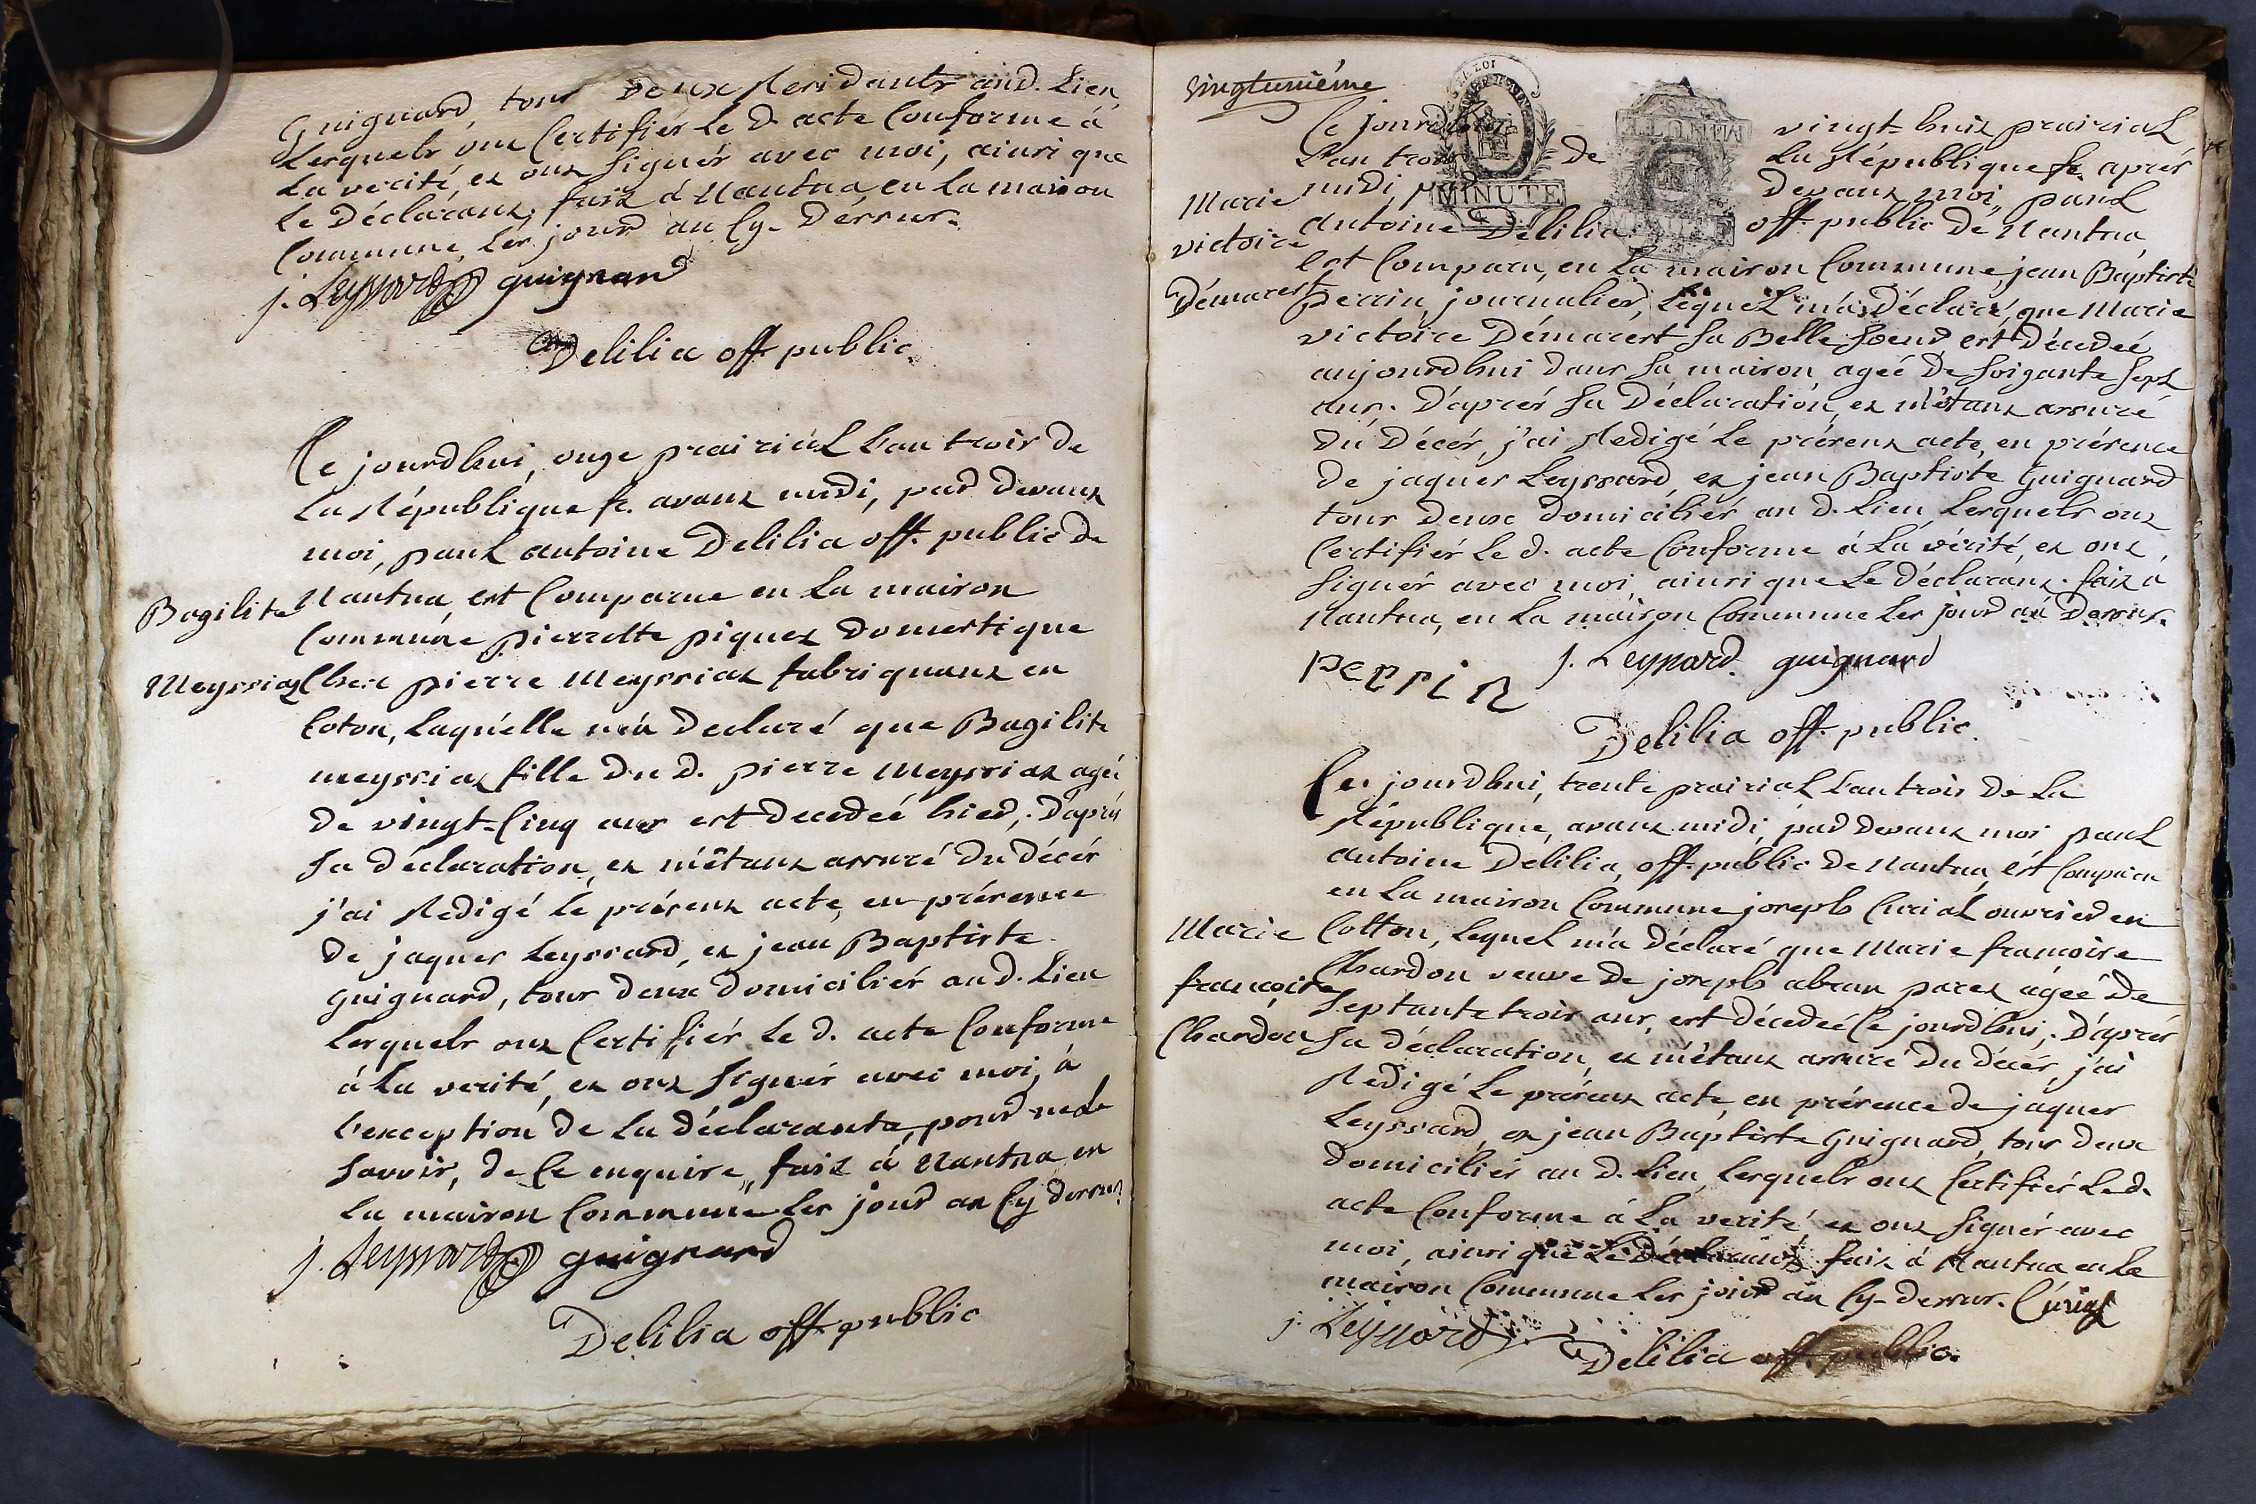 Guignard, tous deux Residants aud. Lieu
Lesquels ont Certifiés le d. acte Conforme à
La verité, et ont Signés avec moi, ainsi que
le Déclarant, fait à Nantua en la maison
Commune, les jour an Cy-Dessus.
j. Leyssard guignard
Delilia off. public.
Ce jourdhui, onze prairial L'an trois de
La République fr. avant midi, par devant
moi, paul antoine Delilia off. public de
Nantua est Comparue en la maison
Commune pierrette piquet Domestique
Chez pierre Meyssiat fabriquant en
Coton, Laquélle m'a Declaré que Bazilite
meyssiat fille du d. pierre Meyssiat agée
de vingt-Cinq ans est decedeé hier, D'aprés
Sa déclaration, et m'étant assuré du décés
j'ai Redigé le présent acte, en présence
de jaques Leyssard, et jean Baptiste
guignard, tous deux domiciliés aud. Lieu
Lesquels ont Certifiés le d. acte Conforme
à La verité, et ont Signés avec moi, à
l'exception de la déclarante, pour ne le
Savoir, de Ce enquise, fait à Nantua en
la maison Commune les jour an Cy dessus
j. Leyssard guignard
Delilia off. public
Bazilite
Meyssiat
vingtunième
Ce jourdhui vingt-huit prairial
L'an trois de La République fr. aprés
midi, par Devant moi, paul
antoine Delilia off. public de Nantua
est Comparu, en la maison Commune, jean Baptiste
perrin, journalier, Lequel m'a Déclaré, que Marie
victoire Démarest Sa Belle-Soeur est Décedeé
aujourdhui dans Sa maison, agée de Soizante Sept
ans. D'aprés Sa Déclaration, et m'étant assuré
Du Décés, j'ai Redigé le présent acte, en présence
de jaques Leyssard, et jean Baptiste Guignard
tous deux domiciliés au d. Lieu, Lesquels ont
Certifiés le d. acte Conforme à la vérité, et ont
Signés avec moi, ainsi que le Déclarant. fait à
Nantua, en la maison Commune les jour an Dessus.
perrin j. Leyssard. guignard
Delilia off. public.
Marie
victoire
Démarest
MINUTE
MINUTE
Ce jourdhui, trente prairial L'an trois de La
République, avant midi, par devant moi paul
antoine Delilia, off. public de Nantua, est Comparu
en La maison Commune joseph Curial ouvrier en
Cotton, Lequel m'a déclaré que Marie françoise
Chardon veuve de joseph abran paret agée de
Septante trois ans, est décedeé Ce jourdhui, D'aprés
Sa déclaration, et m'étant assuré du décés, j'ai
Redigé le présent acte, en présence de jaques
Leyssard, et jean Baptiste Guignard, tous deux
domiciliés au d. Lieu, Lesquels ont Certifiés le d.
acte Conforme à La verité et ont Signés avec
moi, ainsi que Le Déclarant, fait à Nantua en la
maison Commune les jour an Cy-dessus. Curial
j. Leyssard Delilia off. public.
Marie
françoise
Chardon